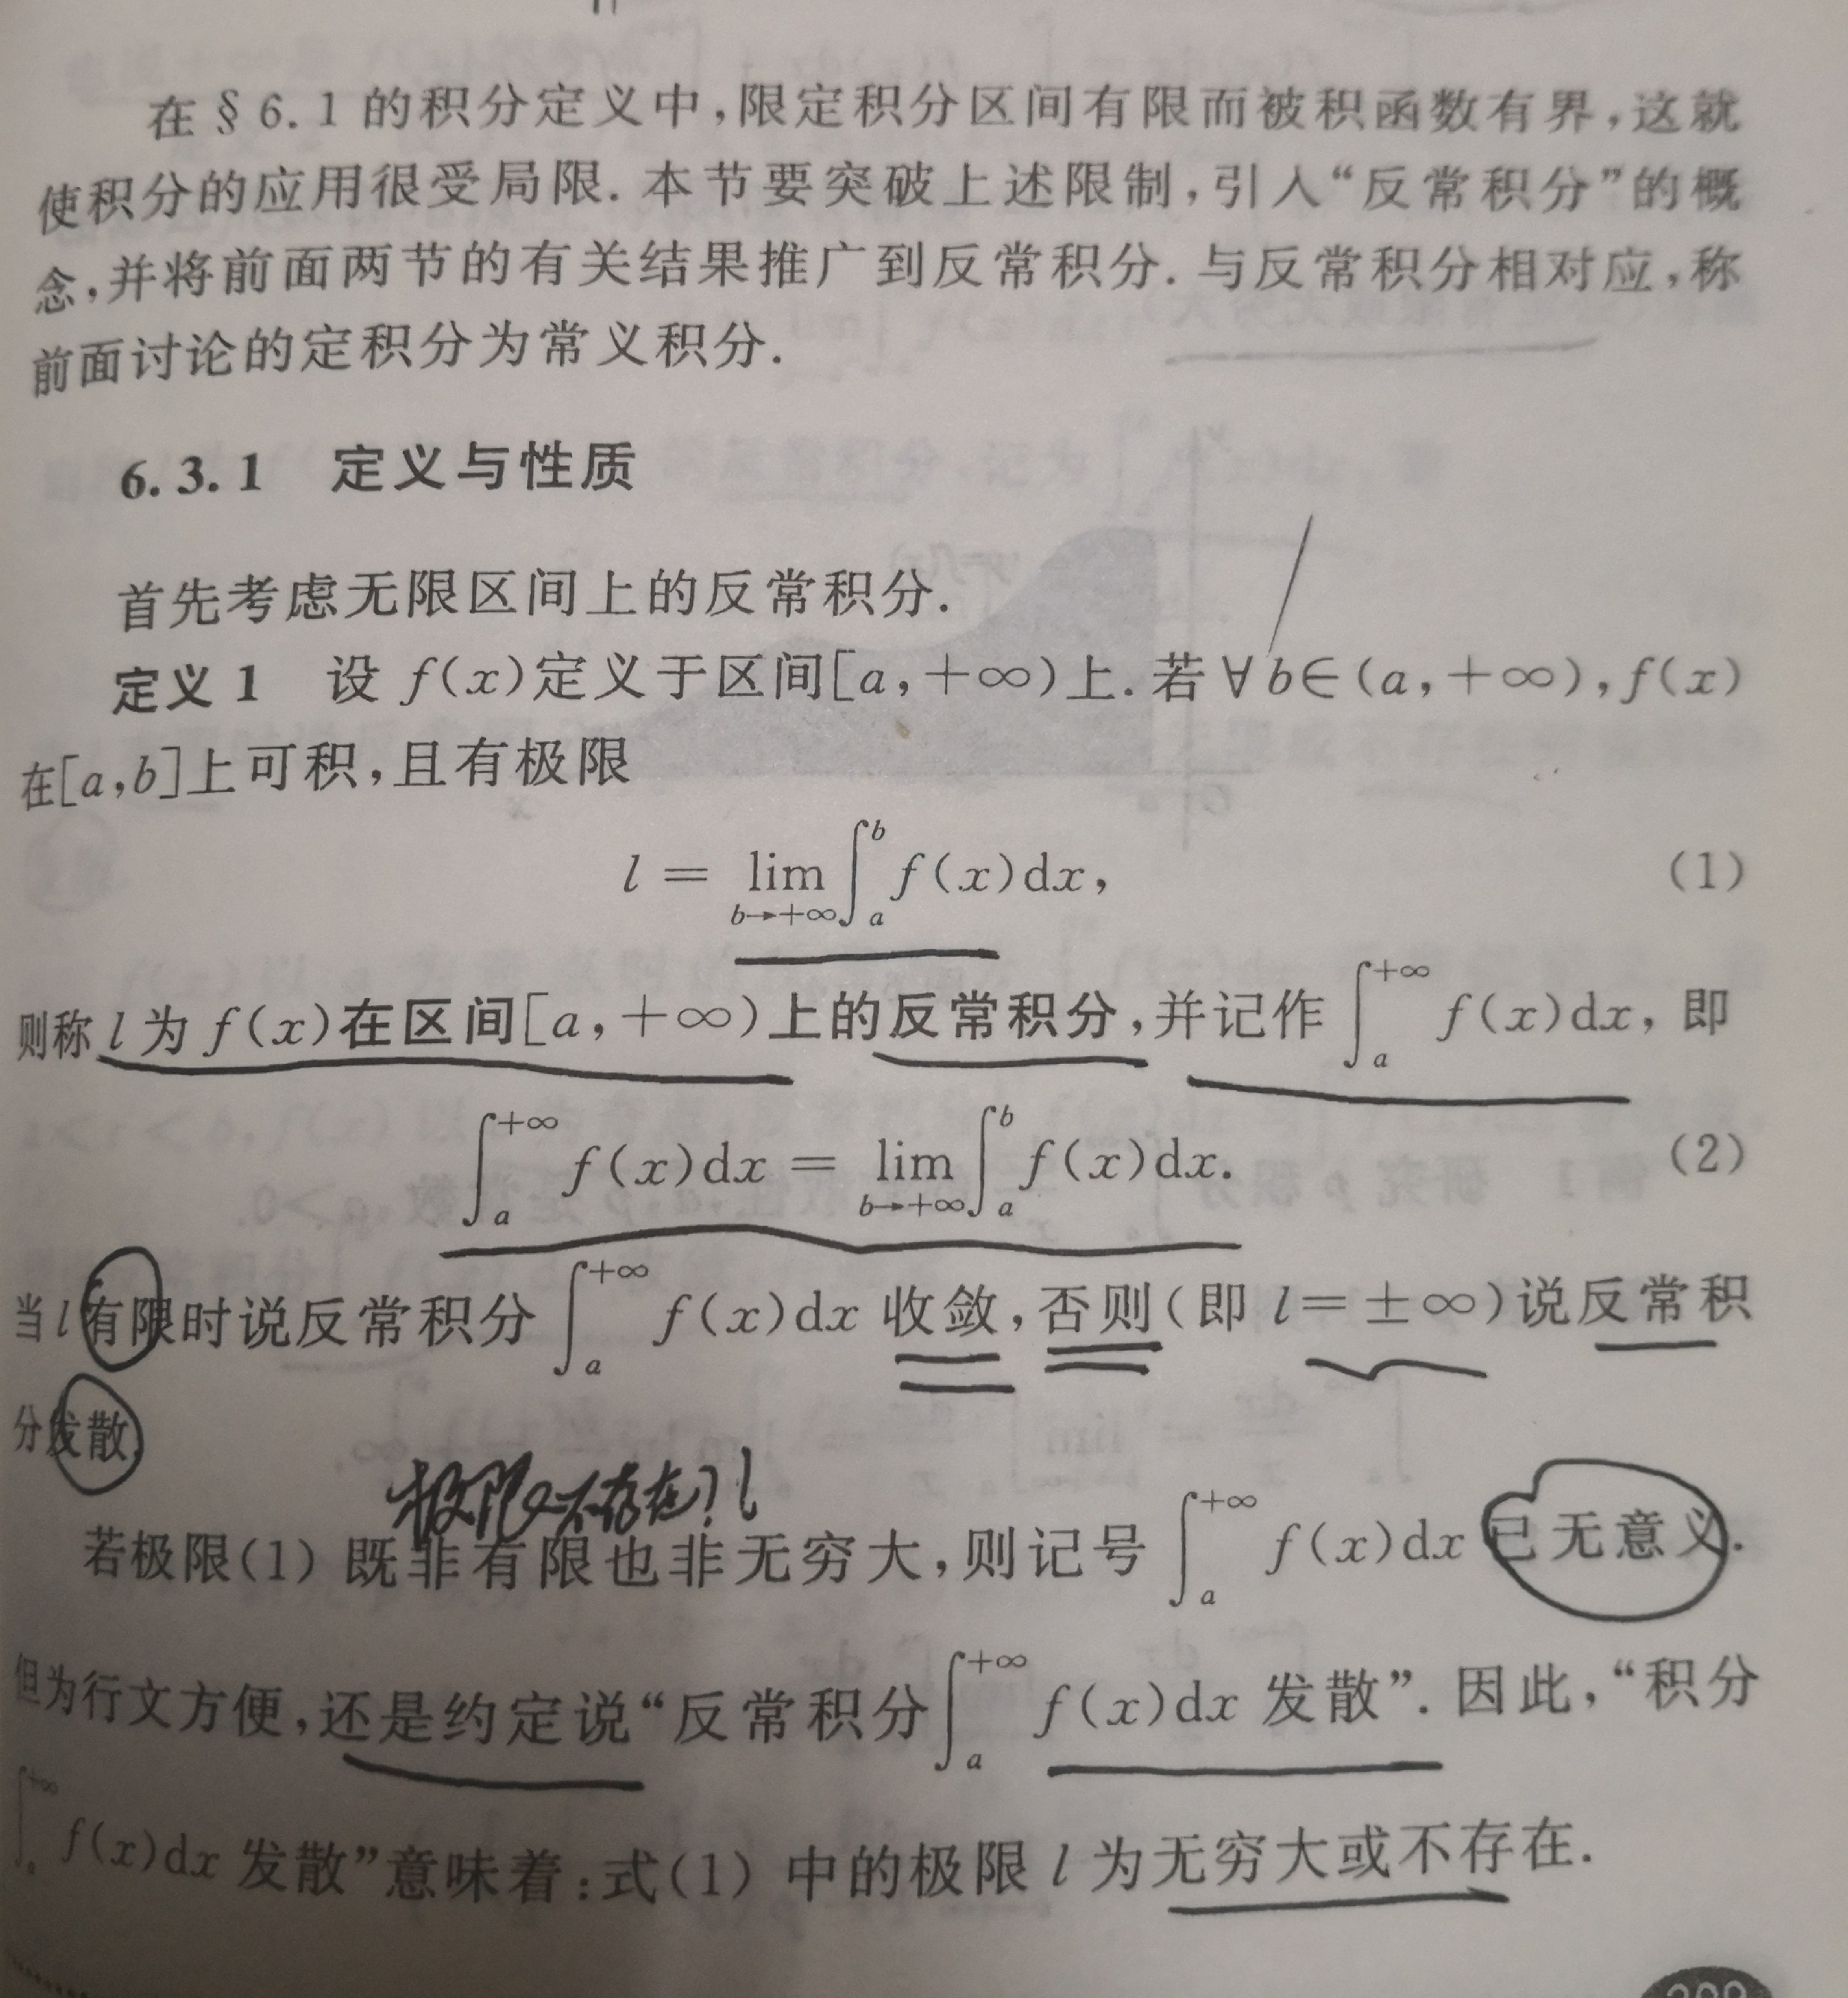 在§6.1的积分定义中,限定积分区间有限而被积函数有界,这就
使积分的应用很受局限.本节要突破上述限制,引入“反常积分”的概
念,并将前面两节的有关结果推广到反常积分.与反常积分相对应,称
前面讨论的定积分为常义积分.
6.3.1 定义与性质
首先考虑无限区间上的反常积分.
定义1 设 f(x)定义于区间[a,+∞)上.若∀b∈(a,+∞),f(x)
在[a,b]上可积,且有极限
l = lim_{b→+∞} ∫_a^b f(x)dx, (1)
则称 l 为 f(x)在区间[a,+∞)上的反常积分,并记作 ∫_a^{+∞} f(x)dx, 即
∫_a^{+∞} f(x)dx = lim_{b→+∞} ∫_a^b f(x)dx. (2)
当 l 有限时说反常积分 ∫_a^{+∞} f(x)dx 收敛,否则(即 l=±∞)说反常积
分发散.
极限不存在?
若极限(1)既非有限也非无穷大,则记号 ∫_a^{+∞} f(x)dx 已无意义.
但为行文方便,还是约定说“反常积分 ∫_a^{+∞} f(x)dx 发散”.因此,“积分
∫_a^{+∞} f(x)dx 发散”意味着:式(1)中的极限 l 为无穷大或不存在.